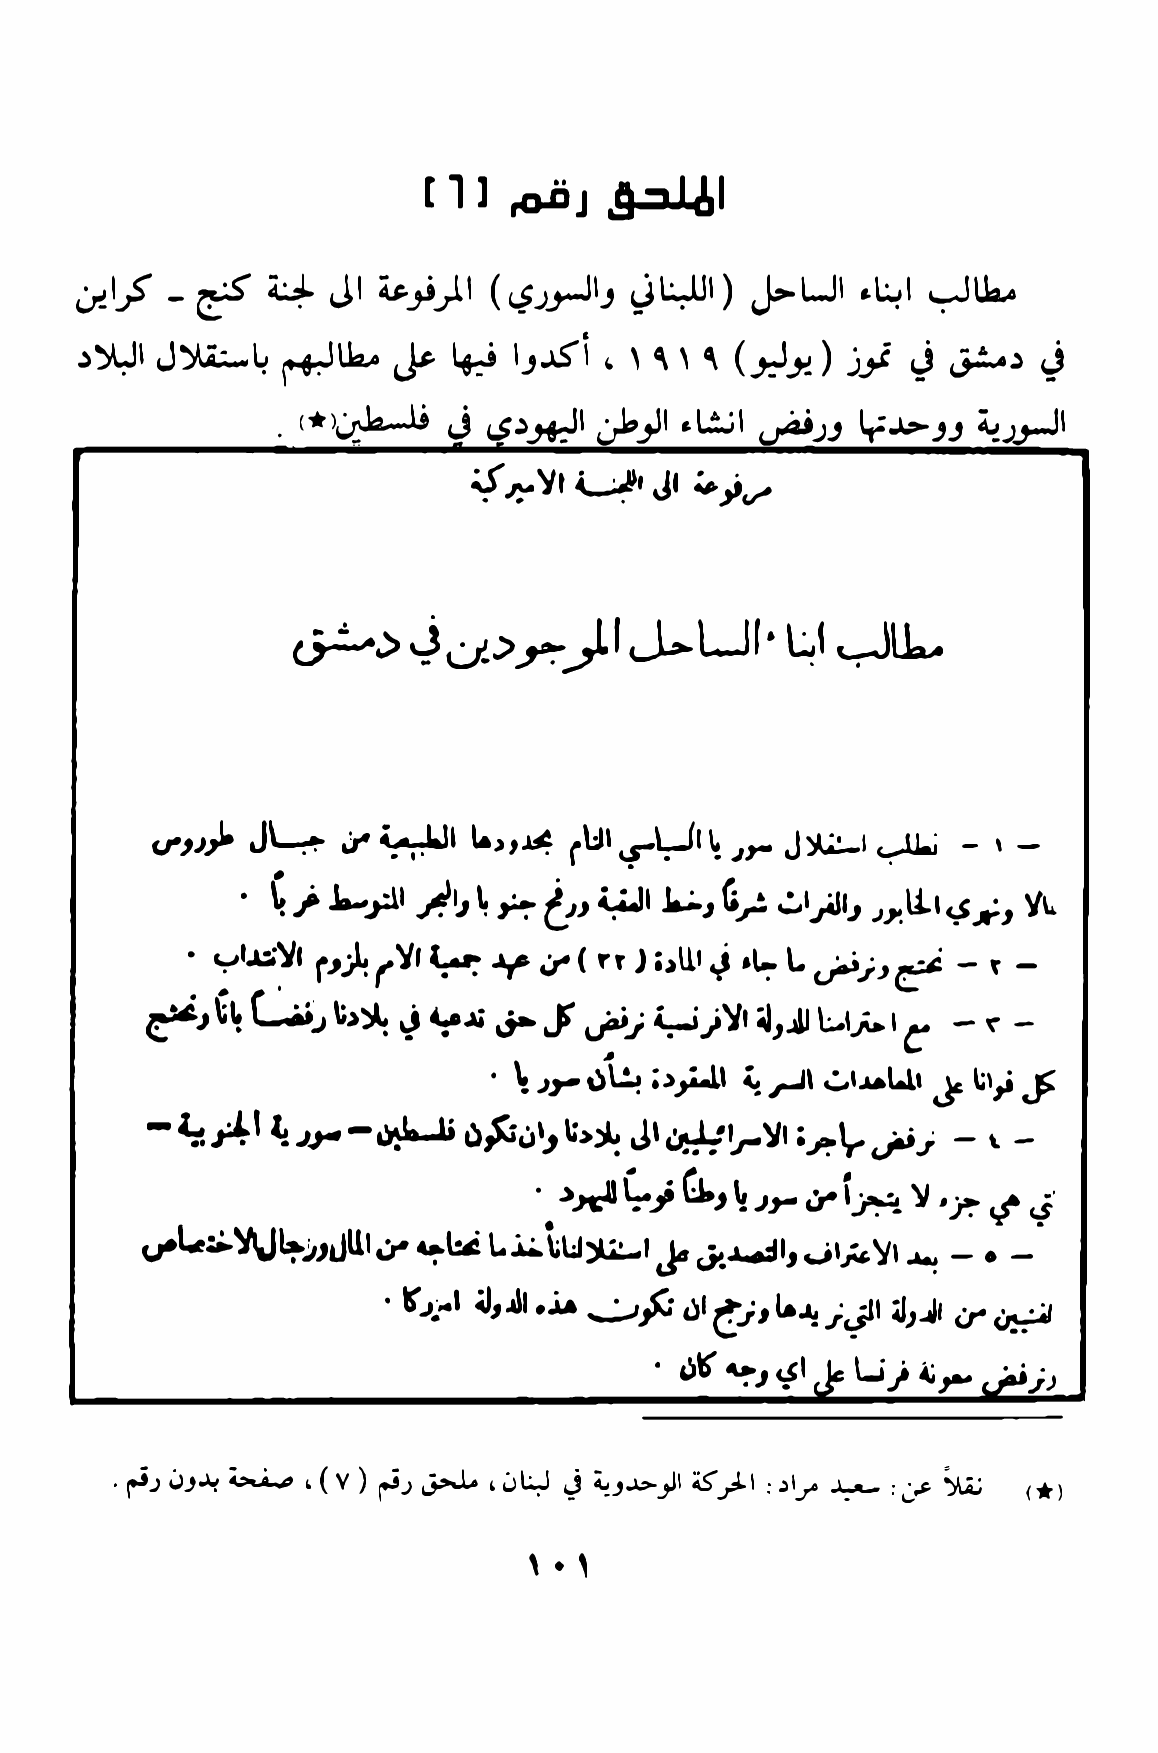 الملحق رقم [٦]
مطالب ابناء الساحل (اللبناني والسوري) المرفوعة الى لجنة كنج - كراين
في دمشق في تموز (يوليو) ١٩١٩ ، أكدوا فيها على مطالبهم باستقلال البلاد
السورية ووحدتها ورفض انشاء الوطن اليهودي في فلسطين(★) .
مرفوعة الى اللجنة الاميركية
مطالب ابناء الساحل الموجودين في دمشق
– ١ – نطلب استقلال سوريا السياسي التام بحدودها الطبيعية من جبال طوروس
مالا ونهري الخابور والفرات شرقاً وخط العقبة ورفح جنوبا والبحر المتوسط غرباً .
– ٢ – نحتج ونرفض ما جاء في المادة (٢٢) من عهد جمعية الامم بلزوم الانتداب .
– ٣ – مع احترامنا للدولة الافرنسية نرفض كل حق تدعيه في بلادنا رفضاً باتاً ونحتج
كل قوانا على المعاهدات السرية المعقودة بشأن سوريا .
– ٤ – نرفض مهاجرة الاسرائيليين الى بلادنا وان تكون فلسطين – سورية الجنوبية –
تي هي جزء لا يتجزأ من سوريا وطناً قومياً لليهود .
– ٥ – بعد الاعتراف والتصديق على استقلالنا نأخذ ما نحتاجه من المال ورجال الاختصاص
لفنيين من الدولة التي نريدها ونرجح ان تكون هذه الدولة اميركا .
ونرفض معونة فرنسا على اي وجه كان .
(★) نقلاً عن: سعيد مراد: الحركة الوحدوية في لبنان، ملحق رقم (٧)، صفحة بدون رقم.
١٠١